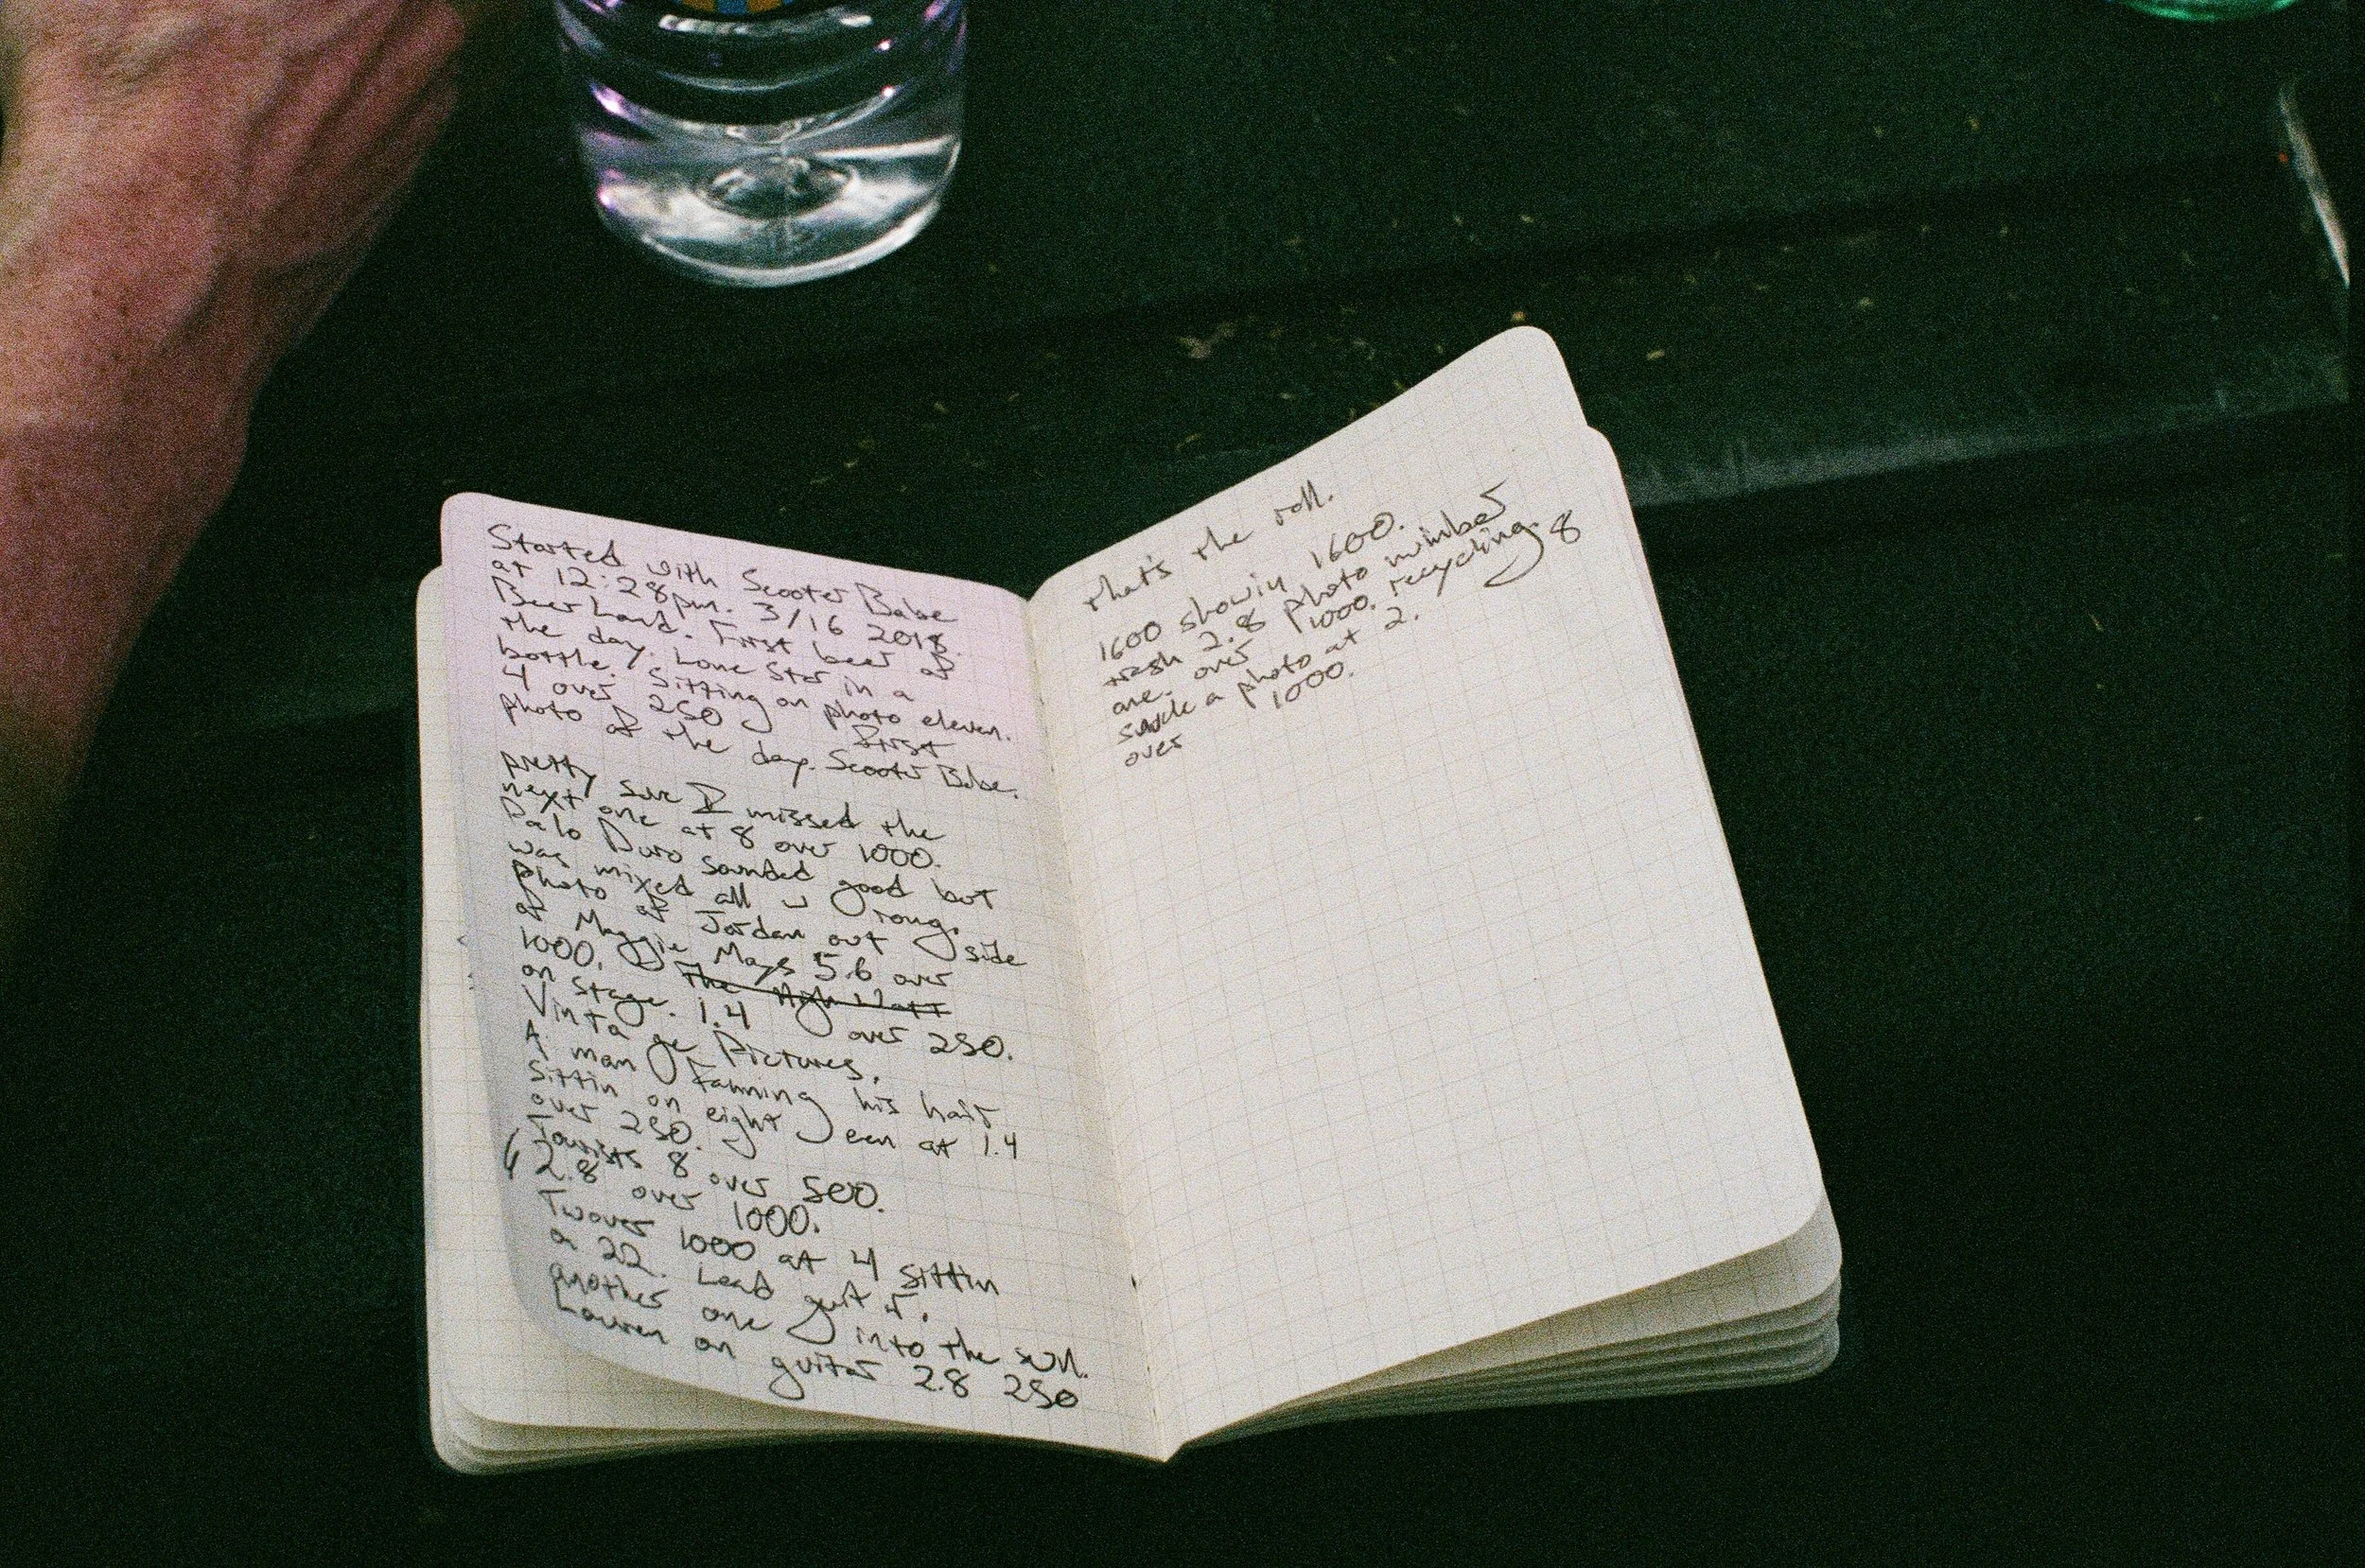 Started with Scooter Babe
at 12:28pm. 3/16 2018.
Beerland. First beer of
the day. Lone Star in a
bottle. Sitting on photo eleven.
4 over 250 First
photo of the day. Scooter Babe.
pretty sure I missed the
next one at 8 over 1000.
Palo Duro sounded good but
was mixed all w rong.
photo of Jordan out side
at Maggie Mays 5.6 over
1000. The High Watt
on stage. 1.4 over 250.
Vinta ge Pictures.
A man fanning his hair
Sittin on eight een at 1.4
over 250.
Tourists 8 over 500.
2.8 over 1000.
Twover 1000 at 4 sittin
a 22. Lead guit
another one into the sun.
Lauren on guitar 2.8 250
that's the roll.
1600 showin 1600.
trash 2.8 photo number
one. over 1000. recycling. 8
a photo at 2.
over 1000.